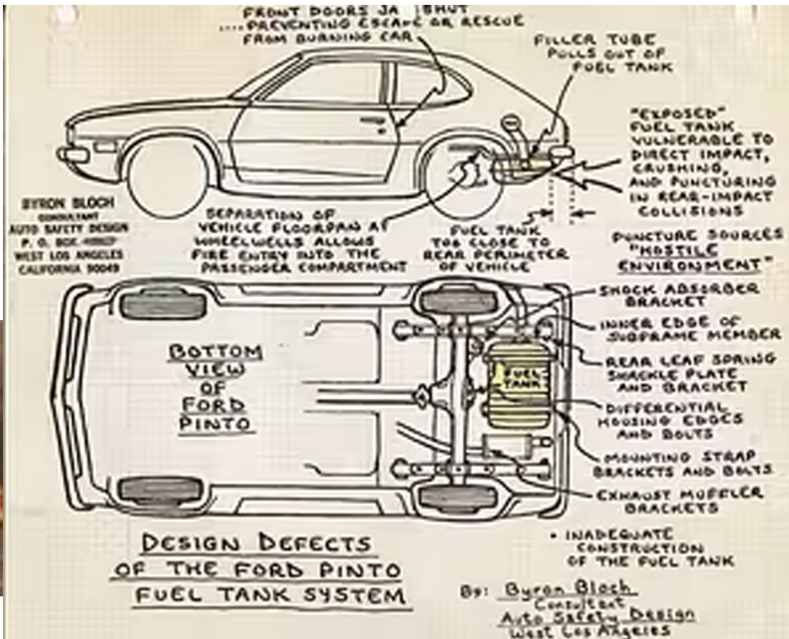 FRONT DOORS JA SHUT
....PREVENTING ESCAPE OR RESCUE
FROM BURNING CAR
FILLER TUBE
PULLS OUT OF
FUEL TANK
"EXPOSED"
FUEL TANK
VULNERABLE TO
DIRECT IMPACT,
CRUSHING,
AND PUNCTURING
IN REAR-IMPACT
COLLISIONS
BYRON BLOCH
CONSULTANT
AUTO SAFETY DESIGN
P. O. BOX
WEST LOS ANGELES
CALIFORNIA 90049
SEPARATION OF
VEHICLE FLOORPAN AT
WHEELWELLS ALLOWS
FIRE ENTRY INTO THE
PASSENGER COMPARTMENT
FUEL TANK
TOO CLOSE TO
REAR PERIMETER
OF VEHICLE
PUNCTURE SOURCES
"HOSTILE
ENVIRONMENT"
SHOCK ABSORBER
BRACKET
INNER EDGE OF
SUBFRAME MEMBER
REAR LEAF SPRING
SHACKLE PLATE
AND BRACKET
DIFFERENTIAL
HOUSING EDGES
AND BOLTS
MOUNTING STRAP
BRACKETS AND BOLTS
EXHAUST MUFFLER
BRACKETS
BOTTOM
VIEW
OF
FORD
PINTO
FUEL
TANK
• INADEQUATE
CONSTRUCTION
OF THE FUEL TANK
DESIGN DEFECTS
OF THE FORD PINTO
FUEL TANK SYSTEM
By: Byron Bloch
Consultant
Auto Safety Design
West Los Angeles